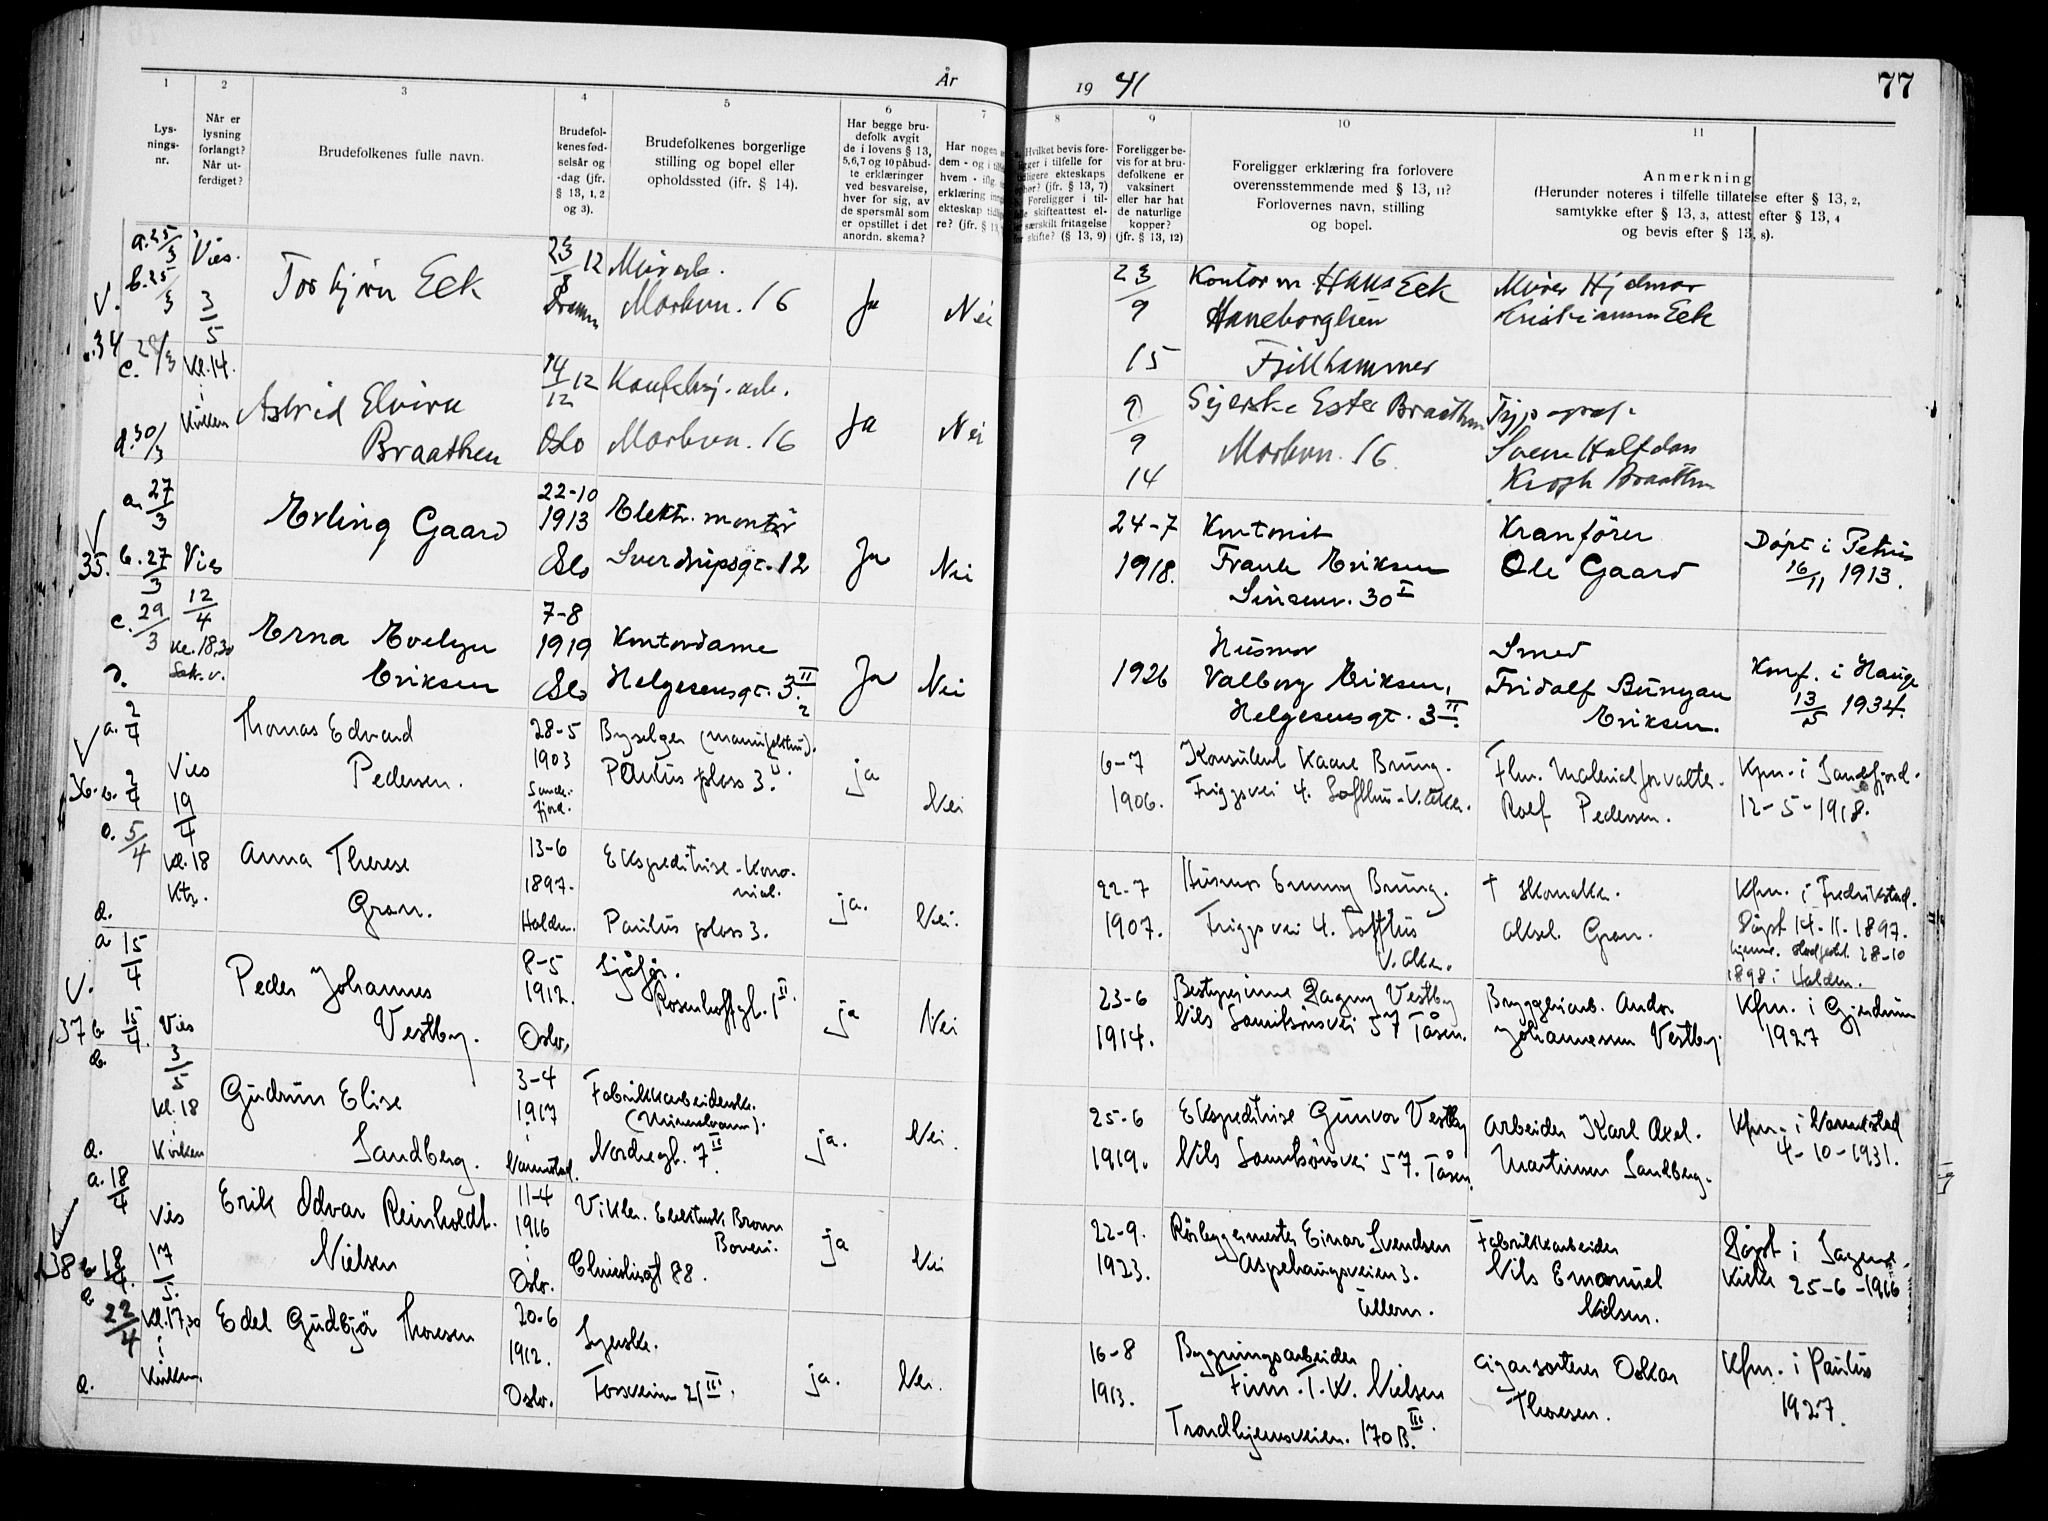 År
19 41
77
1
2
3
4
5
6
7
8
9
10
11
Lys-
nings-
nr.
Når er
lysning
forlangt?
Når ut-
ferdiget?
Brudefolkenes fulle navn.
Brudefol-
kenes fød-
selsår og
-dag (jfr.
§ 13, 1, 2
og 3).
Brudefolkenes borgerlige
stilling og bopel eller
opholdssted (jfr. § 14).
Har begge bru-
defolk avgit
de i lovens § 13,
5, 6, 7 og 10 påbud-
te erklæringer
ved besvarelse,
hver for sig, av
de spørsmål som
er opstillet i det
anordn. skema?
Har nogen
dem - og i
hvem - iflg.
erklæring
ekteskap
re? (jfr. § 13,
Hvilket bevis fore-
i tilfelle for
ekteskaps
(jfr. § 13, 7)
Foreligger i til-
skifteattest el-
særskilt fritagelse
skifte? (§ 13, 9)
Foreligger be-
vis for at bru-
defolkene er
vaksinert
eller har hat
de naturlige
kopper?
(jfr. § 13, 12)
Foreligger erklæring fra forlovere
overensstemmende med § 13, 11?
Forlovernes navn, stilling
og bopel.
Anmerkning
(Herunder noteres i tilfelle tillatelse efter § 13, 2,
samtykke efter § 13, 3, attest efter § 13, 4
og bevis efter § 13, 8).
V.
34
a. 25/3
b. 25/3
c.
d. 30/3
Vies.
3/5
Kl. 14.
i
Kirken
Torbjörn Eek
12
Murarb.
Markvn. 16
Ja
Nei
23/9
15
Kontor m Hans Eek
Haneborglien
Fjellhammer
Murer Hjalmar
Kristiansen Eek
Astrid Elvira
Braathen
14/12 12
Oslo
Konfeksj. arb.
Markvn. 16
Ja
Nei
9/9
14
Syerske Ester Braathen
Markvn. 16
Typograf
Svenn Halfdan
Krogh Braathen
35.
a. 27/3
b. 27/3
c. 29/3
d.
Vies
12/4
kl. 18,30
Sakr.
Erling Gaard
22-10
1913
Oslo
Elektr. montör
Sverdrupsgt. 12
Ja
Nei
24-7
1918.
Kontorist
Frank Eriksen
Sinsenv. 30 I
Kranförer
Ole Gaard
Döpt i Petrus
16/11 1913.
Erna Evelyn
Eriksen
7-8
1919
Oslo
Kontordame
Helgesensgt. 3 II
2
Ja
Nei
1926
Husmor
Valborg Eriksen,
Helgesensgt. 3 II.
Smed
Fridolf Bunyan
Eriksen.
Konf. i Hauge
13/5 1934.
36.
a. 2/4
b. 2/4
5/4
d.
Vies
19/4
kl. 18
Ktr.
Thomas Edvard
Pedersen.
28-5
1903
Sande-
fjord.
Byselger (manufaktur).
Paulus plass 3 II.
ja
Nei
6-7
1906.
Konsulent Kaare Brung.
Friggsvei 4. Lofthus - V. Aker.
Fhv. Materialforvalter
Rolf Pedersen.
Kfm. i Sandefjord.
12-5-1918.
Anna Therese
Gran.
13-6
1897.
Halden.
Ekspeditrise - Kolo-
nial.
Paulus plass 3.
ja.
Nei.
22-7
1907.
Husmor Emmy Brung.
Friggsvei 4. Lofthus
V. Aker.
† Skomaker.
Aksel Gran.
Kfm. i Fredrikstad.
Döpt 14-11-1897.
hjemme. stadfestet 28-10
1898 i Halden.
V.
37
a 15/4
b 15/4.
d.
Vies
3/5
kl. 18
i
Kirken
Peder Johannes
Vestby.
8-5
1912.
Oslo.
Sjåför.
Rosenhoffgt. 1 II.
ja
Nei
23-6
1914.
Bestyrerinne Dagny Vestby
Nils Lauritsönsvei 57 Tåsen.
Bryggeriarb. Andr.
Johannesen Vestby.
Kfm. i Gjerdrum
1927
Gudrun Elise
Sandberg.
3-4
1917
i
Vannstad.
Fabrikkarbeiderske.
(Mineralvann).
Nordregt. 7 II.
ja.
Nei.
25-6
1919.
Ekspeditrise Gunvor Vestby
Nils Lauritsönsvei 57. Tåsen.
Arbeider Karl Axel.
Martinsen Sandberg.
4-10-1931.
38
a. 18/4
b 18/4.
22/4
d.
Vies
17/5.
kl. 17,30
i
Kirken.
Erik Odvar Reinholdt.
Nielsen
11-4
1916
i
Oslo.
Vikler. Elektrisk Brown
Boveri.
Chr. Michelsensgt 88.
ja
Nei
22-9.
1923.
Rörleggermester Einar Svendsen
Aspehaugsveien 3.
Ullern.
Fabrikkarbeider
Nils Emanuel
Nielsen.
Döpt i Sagene
Kirke 25-6-1916
Edel Gudbjör Thoresen
20-6
1912.
Oslo.
Syerske.
Torsveien 21 III.
ja.
Nei.
16-8
1913.
Bygningsarbeider
Finn. T. W. Nielsen
Trondhjemsveien. 170 B. III.
Cigarsorterer Oskar
Thoresen.
Kfm. i Paulus
1927.